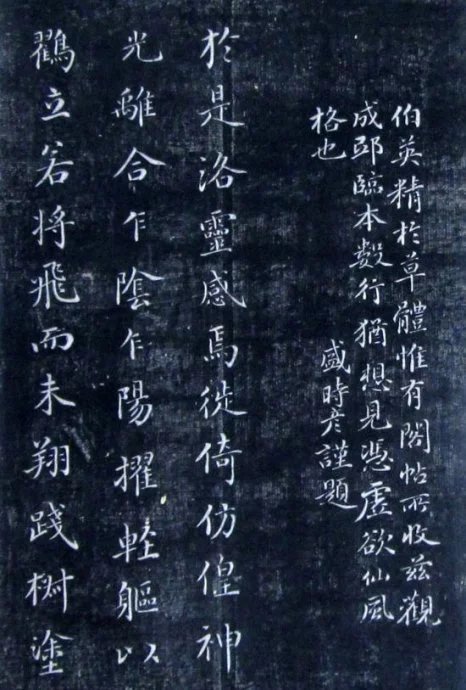 伯英精於草體惟有閣帖所收茲觀
成邸臨本數行猶想見憑虛欲仙風
格也
盛時彥謹題
於是洛靈感焉徙倚仿偟神
光離合乍陰乍陽擢輕軀以
鶴立若將飛而未翔踐椒塗